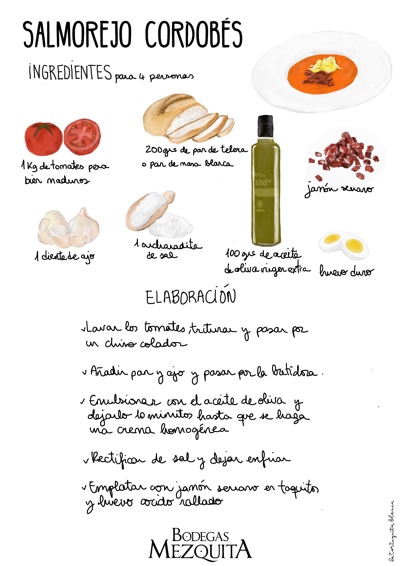 SALMOREJO CORDOBÉS
INGREDIENTES para 4 personas
1 Kg de tomates pera
bien maduros
200 grs de pan de telera
o pan de masa blanca
jamón serrano
1 diente de ajo
1 cucharadita
de sal
100 grs de aceite
de oliva virgen extra
huevo duro
ELABORACIÓN
✓ Lavar los tomates, triturar y pasar por
un chino colador
✓ Añadir pan y ajo y pasar por la batidora.
✓ Emulsionar con el aceite de oliva y
dejarlo 10 minutos hasta que se haga
una crema homogénea
✓ Rectificar de sal y dejar enfriar
✓ Emplatar con jamón serrano en taquitos
y huevo cocido rallado
BODEGAS
MEZQUITA